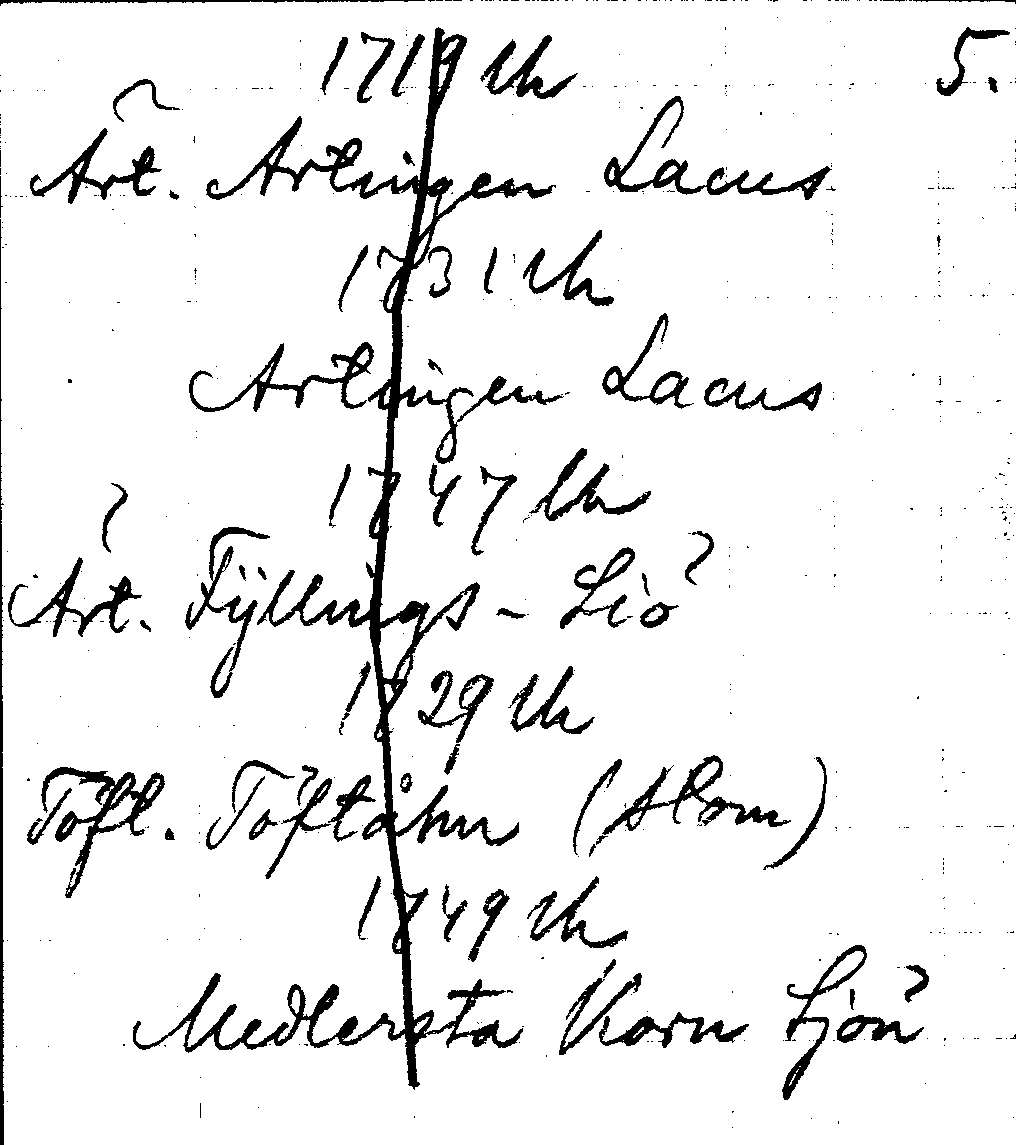 1719 Uk 5.
Ärt. Ärtingen Lacus
1731 Uk
Ärtingen Lacus
1747 Uk
Ärt. Fÿllings - Siö
1729 Uk
Töft. Töftåhn (Hom)
1749 Uk
Medlersta Korn Sjön